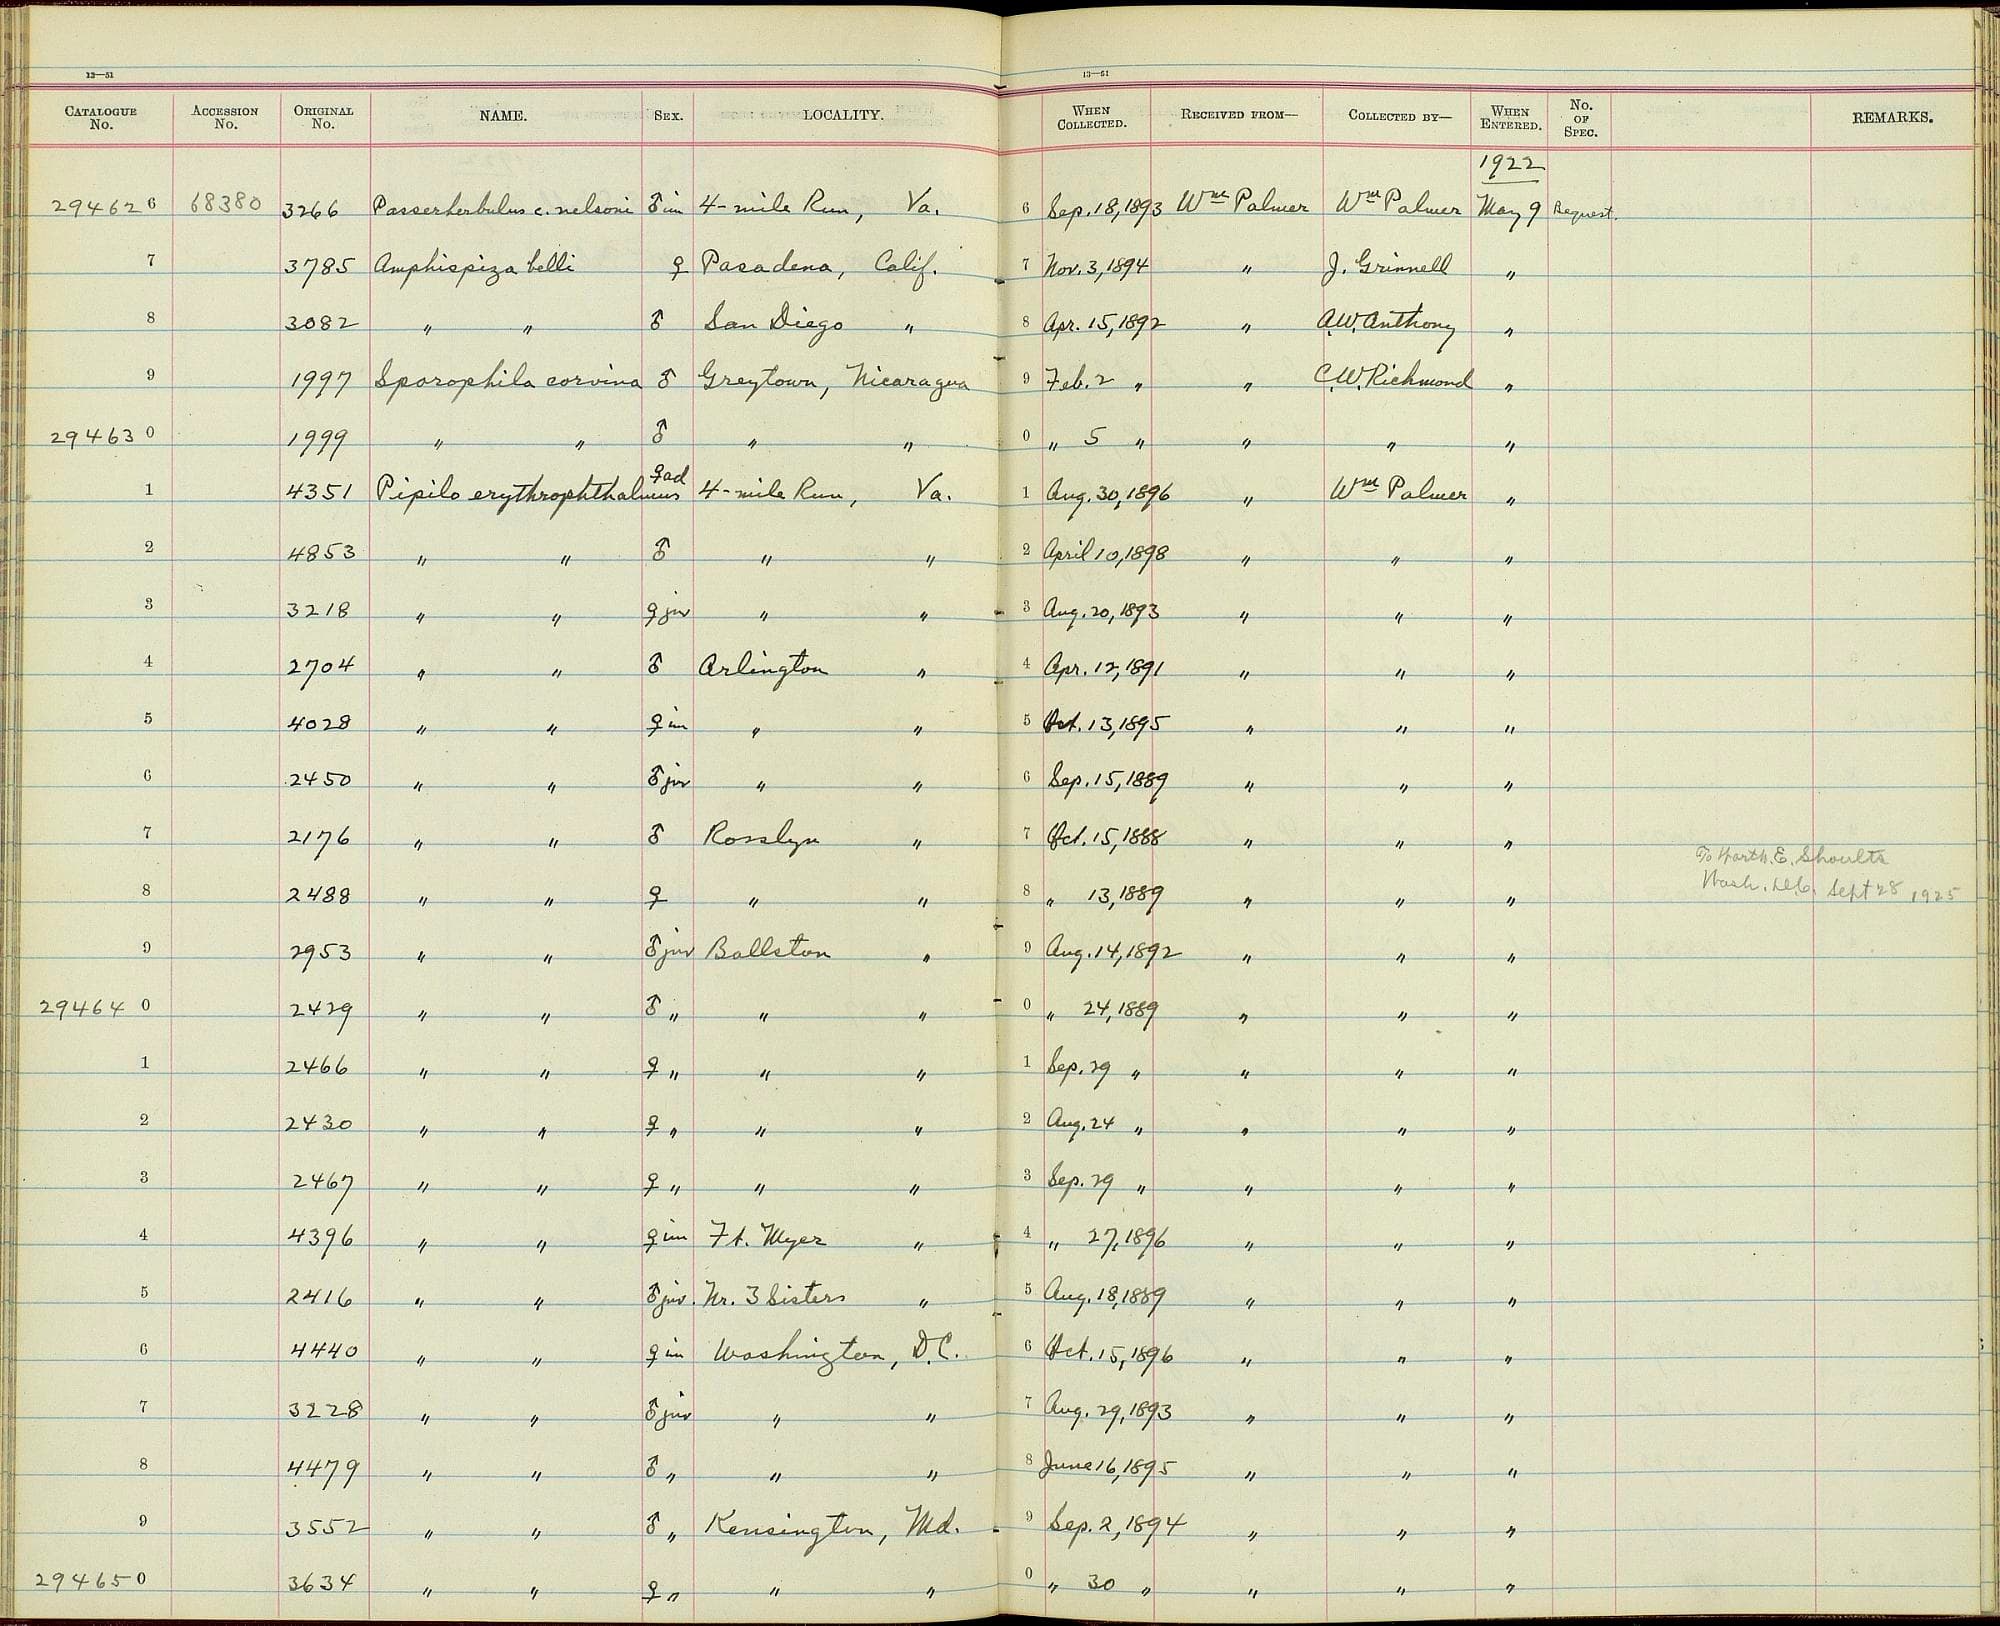 13—51 13—51
CATALOGUE No. ACCESSION No. ORIGINAL No. NAME. SEX. LOCALITY. WHEN COLLECTED. RECEIVED FROM— COLLECTED BY— WHEN ENTERED. No. OF SPEC. REMARKS.
1922
29462 6 68380 3266 Passerherbulus c. nelsoni ♂ im 4-mile Run, Va. 6 Sep. 18, 1893 Wm Palmer Wm Palmer May 9 Bequest.
7 3785 Amphispiza belli ♀ Pasadena, Calif. 7 Nov. 3, 1894 " J. Grinnell "
8 3082 " " ♂ San Diego " 8 Apr. 15, 1892 " A.W. Anthony "
9 1997 Sporophila corvina ♂ Greytown, Nicaragua 9 Feb. 2 " " C.W. Richmond "
29463 0 1999 " " ♂ " " 0 " 5 " " " "
1 4351 Pipilo erythrophthalmus ♀ ad 4-mile Run, Va. 1 Aug. 30, 1896 " Wm Palmer "
2 4853 " " ♂ " " 2 April 10, 1898 " " "
3 3218 " " ♀ juv " " 3 Aug. 20, 1893 " " "
4 2704 " " ♂ Arlington " 4 Apr. 12, 1891 " " "
5 4028 " " ♀ im " " 5 Oct. 13, 1895 " " "
6 2450 " " ♂ juv " " 6 Sep. 15, 1889 " " "
7 2176 " " ♂ Rosslyn " 7 Oct. 15, 1888 " " "
To E. Shoults
8 2488 " " ♀ " " 8 " 13, 1889 " " " Wash. D.C. Sept 28 1925
9 2953 " " ♂ juv Ballston " 9 Aug. 14, 1892 " " "
29464 0 2429 " " ♂ " " " 0 " 24, 1889 " " "
1 2466 " " ♀ " " " 1 Sep. 29 " " " "
2 2430 " " ♀ " " " 2 Aug. 24 " " " "
3 2467 " " ♀ " " " 3 Sep. 29 " " " "
4 4396 " " ♀ im Ft. Myer " 4 " 27, 1896 " " "
5 2416 " " ♂ juv. Nr. 3 Sisters " 5 Aug. 18, 1889 " " "
6 4440 " " ♀ im Washington, D.C. 6 Oct. 15, 1896 " " "
7 3228 " " ♂ juv " " 7 Aug. 29, 1893 " " "
8 4479 " " ♂ " " " 8 June 16, 1895 " " "
9 3552 " " ♂ " Kensington, Md. 9 Sep. 2, 1894 " " "
29465 0 3634 " " ♀ " " " 0 " 30 " " " "